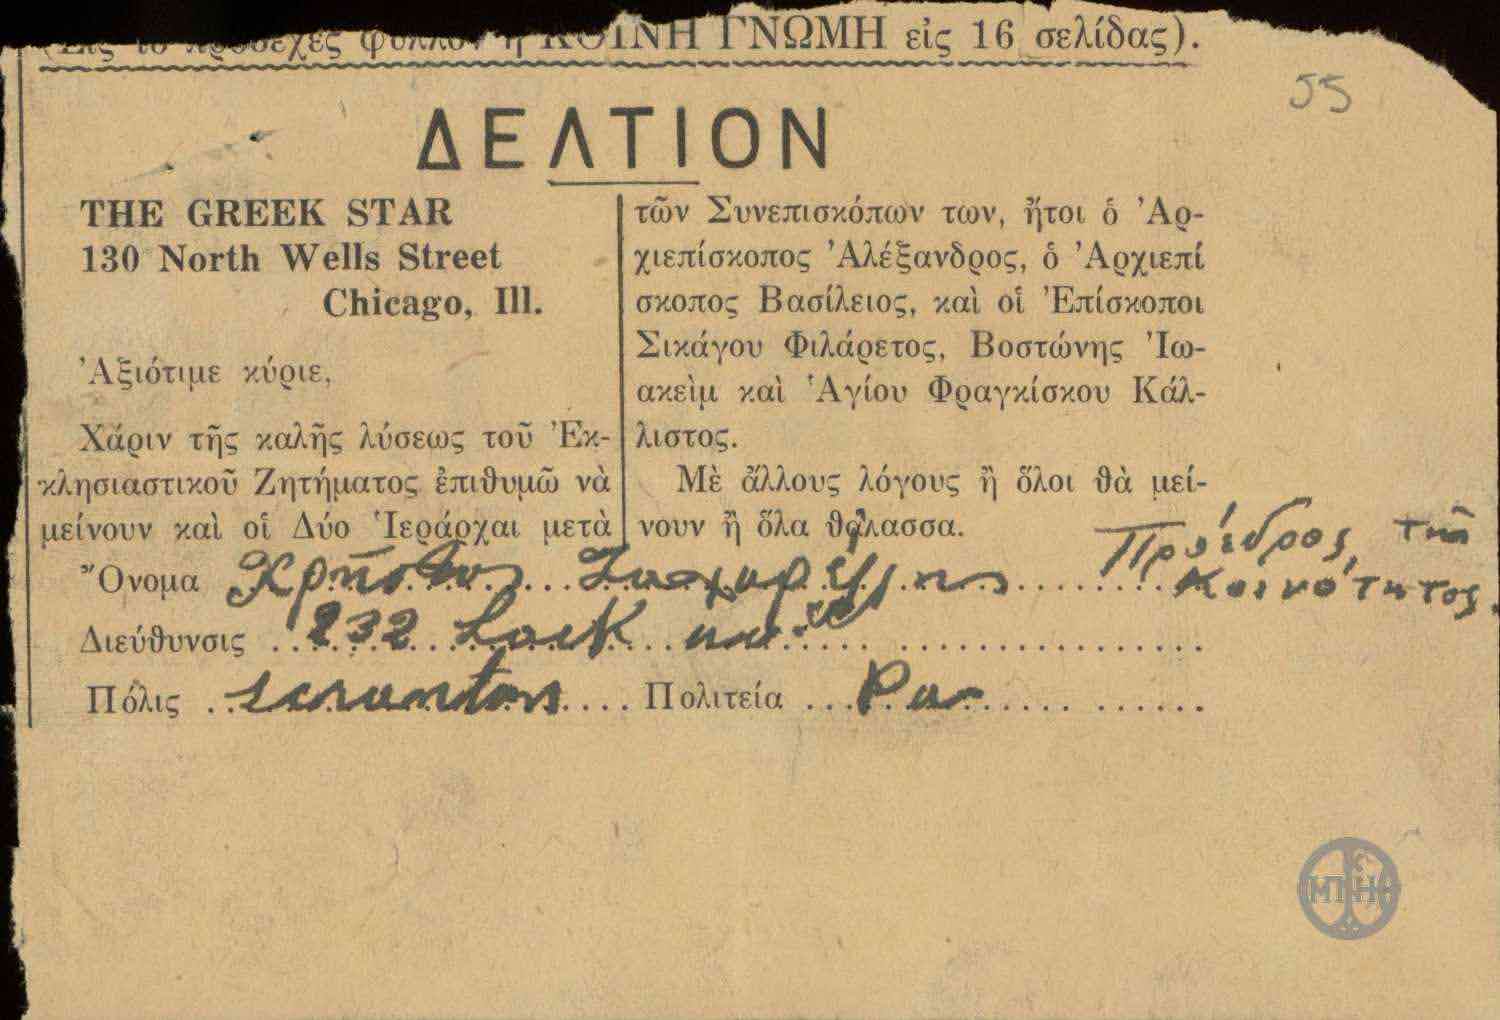 (Εἰς τὸ προσεχὲς φύλλον ἡ ΚΟΙΝΗ ΓΝΩΜΗ εἰς 16 σελίδας).
55
ΔΕΛΤΙΟΝ
THE GREEK STAR
130 North Wells Street
Chicago, Ill.
Ἀξιότιμε κύριε,
Χάριν τῆς καλῆς λύσεως τοῦ Ἐκ-
κλησιαστικοῦ Ζητήματος ἐπιθυμῶ νὰ
μείνουν καὶ οἱ Δύο Ἱεράρχαι μετὰ
τῶν Συνεπισκόπων των, ἤτοι ὁ Ἀρ-
χιεπίσκοπος Ἀλέξανδρος, ὁ Ἀρχιεπί
σκοπος Βασίλειος, καὶ οἱ Ἐπίσκοποι
Σικάγου Φιλάρετος, Βοστώνης Ἰω-
ακεὶμ καὶ Ἁγίου Φραγκίσκου Κάλ-
λιστος.
Μὲ ἄλλους λόγους ἢ ὅλοι θὰ μεί-
νουν ἢ ὅλα θάλασσα.
Ὄνομα Χρῆστος Πρόεδρος τῆς
Κοινότητος.
Διεύθυνσις 232 ave
Πόλις scranton Πολιτεία Pa
ΜΠΗ